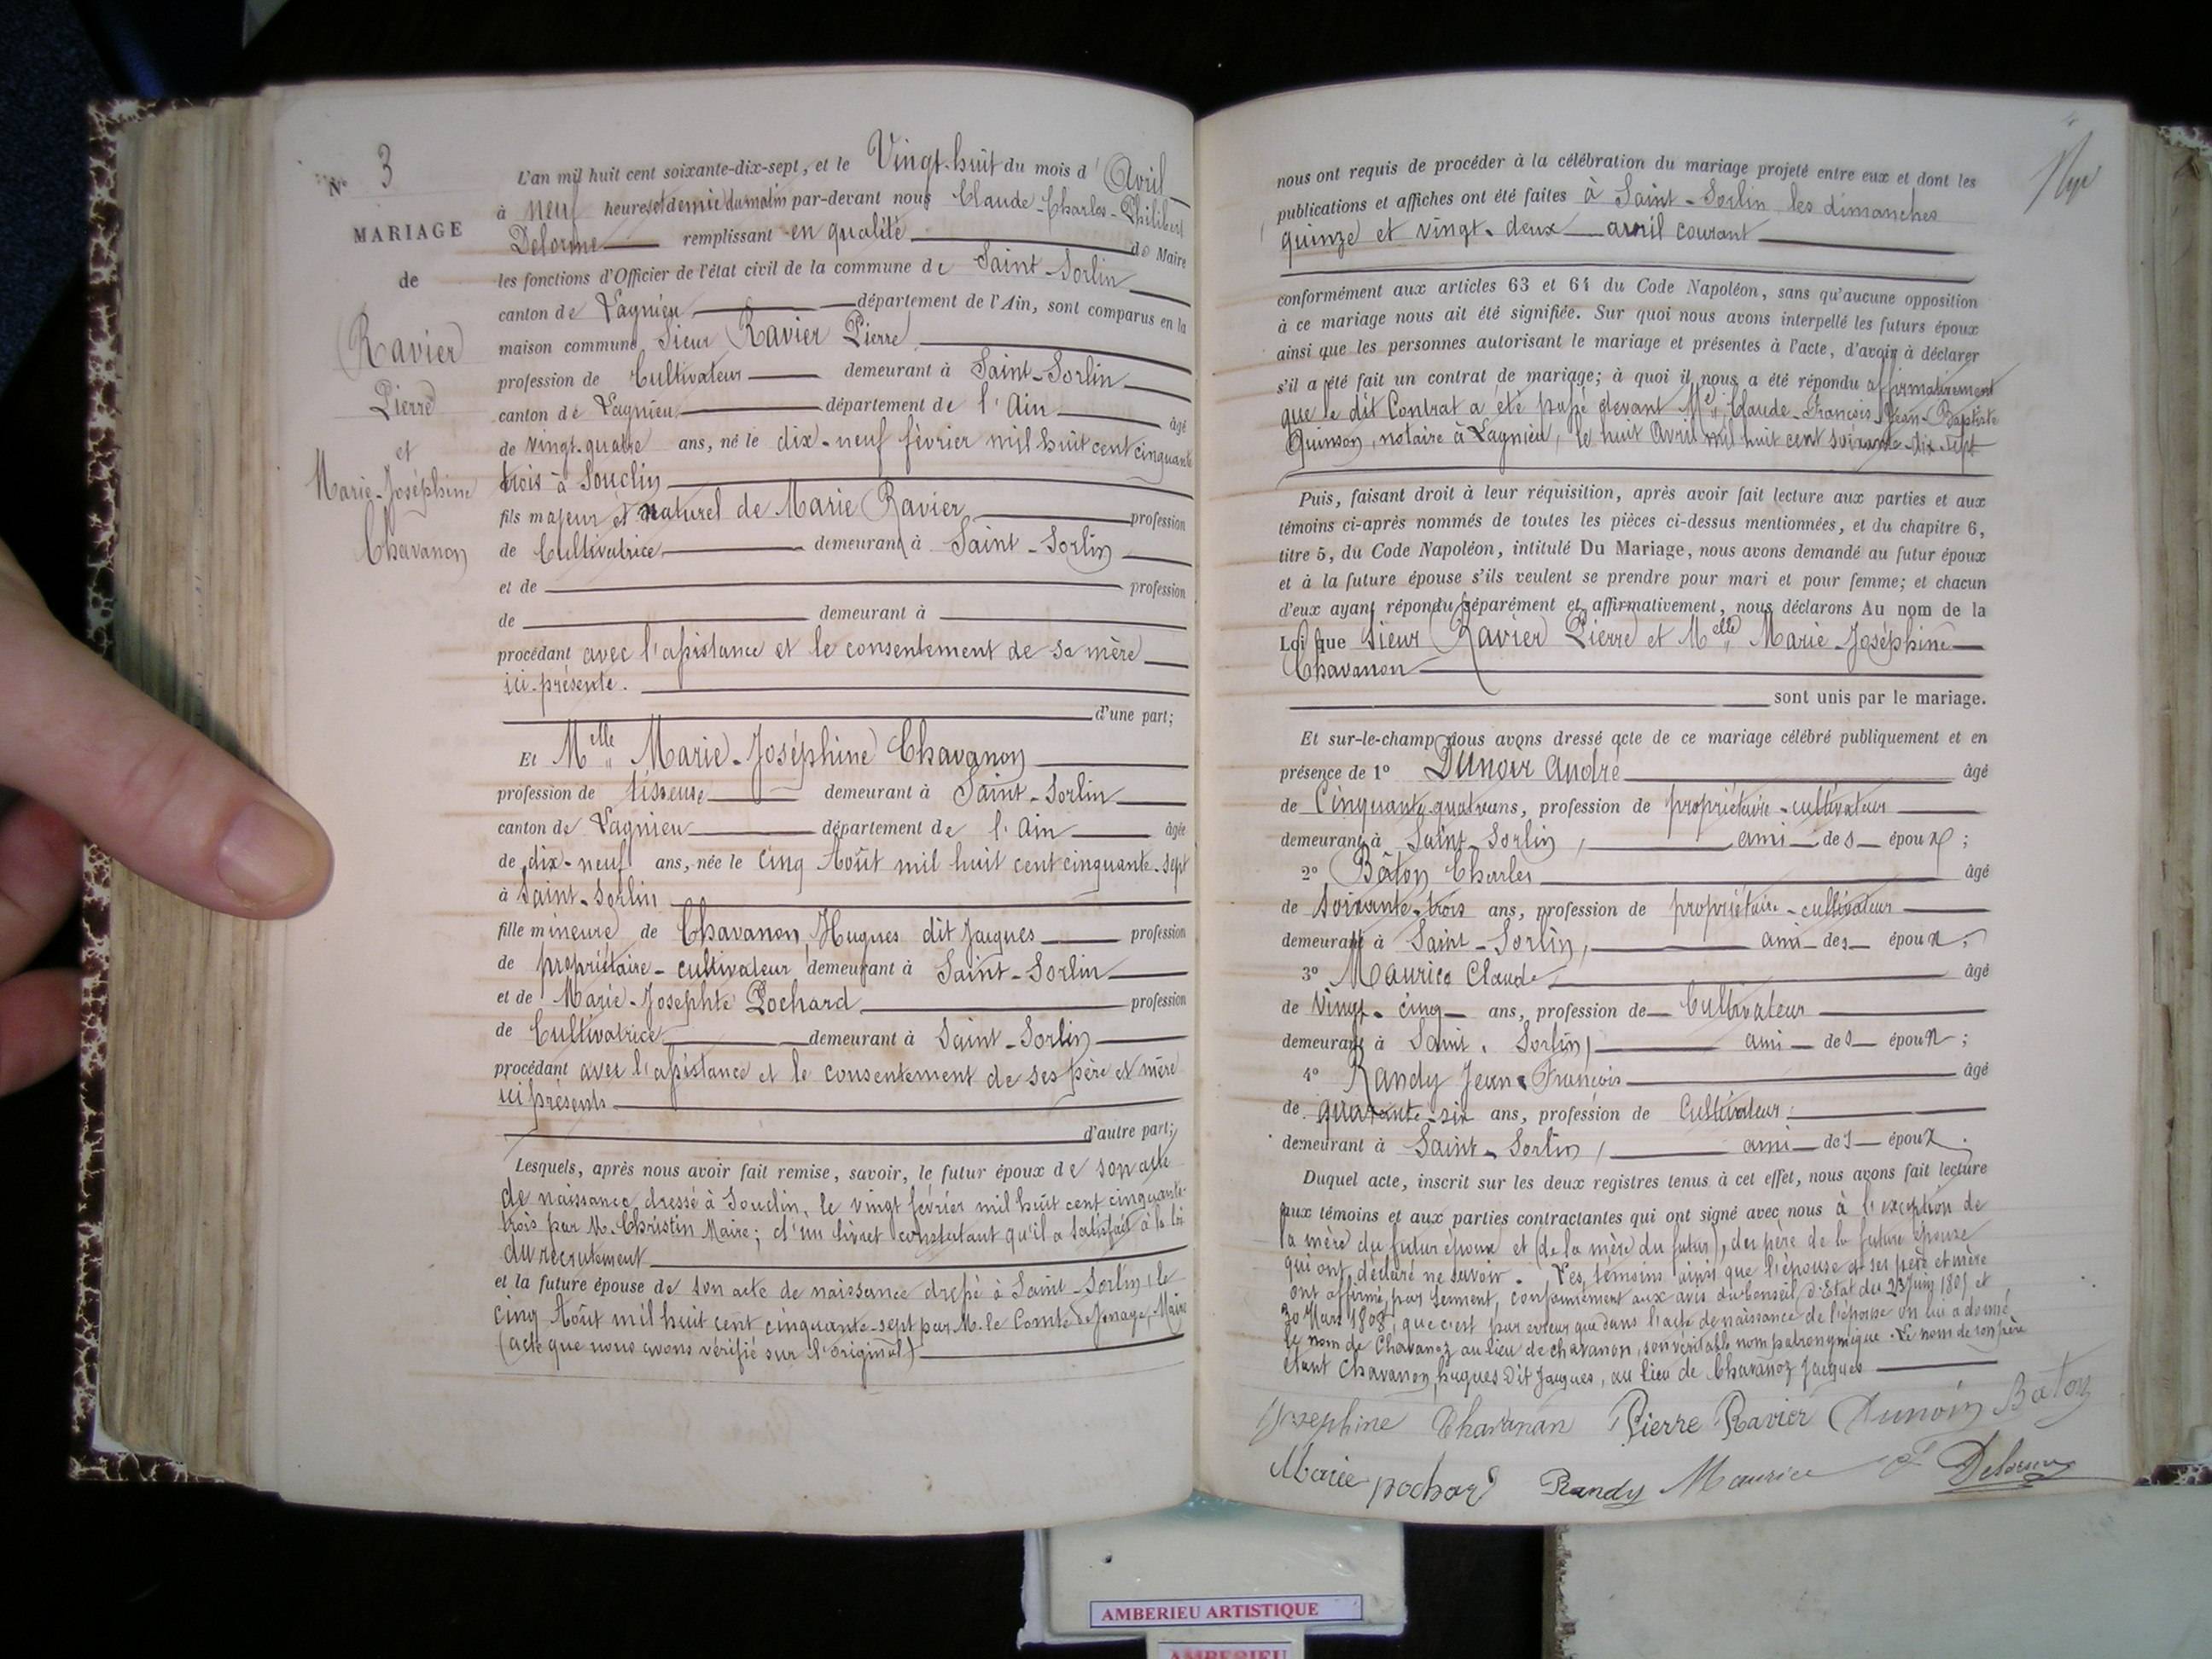 N° 3
MARIAGE
de
Ravier
Pierre
et
Marie-Joséphine
Chavanon
L'an mil huit cent soixante-dix-sept, et le Vingt-huit du mois d'Avril
à neuf heures et demie du matin par-devant nous Claude-Charles-Philibert
Delorme remplissant en qualité de Maire
les fonctions d'Officier de l'état civil de la commune de Saint-Sorlin
canton de Lagnieu département de l'Ain, sont comparus en la
maison commune, Sieur Ravier Pierre
profession de Cultivateur demeurant à Saint-Sorlin
canton de Lagnieu département de l'Ain âgé
de vingt-quatre ans, né le dix-neuf février mil huit cent cinquante
trois à Souclin
fils majeur et naturel de Marie Ravier profession
de Cultivatrice demeurant à Saint-Sorlin
et de profession
de demeurant à
procédant avec l'assistance et le consentement de sa mère
ici-présente.
d'une part;
Et Melle Marie-Joséphine Chavanon
profession de tisseuse demeurant à Saint-Sorlin
canton de Lagnieu département de l'Ain âgée
de dix-neuf ans, née le cinq Août mil huit cent cinquante-sept
à Saint-Sorlin
fille mineure de Chavanon, Hugues dit Jacques profession
de propriétaire-cultivateur demeurant à Saint-Sorlin
et de Marie-Josephte Pochard profession
de Cultivatrice demeurant à Saint-Sorlin
procédant avec l'assistance et le consentement de ses père et mère
ici présents
d'autre part;
Lesquels, après nous avoir fait remise, savoir, le futur époux de son acte
de naissance dressé à Souclin, le vingt février mil huit cent cinquante-
trois par M. Christin Maire; d'un livret constatant qu'il a satisfait à la loi
du recrutement
et la future épouse de son acte de naissance dressé à Saint-Sorlin, le
cinq Août mil huit cent cinquante-sept par M. le Comte Maire
(acte que nous avons vérifié sur l'original)
nous ont requis de procéder à la célébration du mariage projeté entre eux et dont les
publications et affiches ont été faites à Saint-Sorlin les dimanches
quinze et vingt-deux avril courant
conformément aux articles 63 et 64 du Code Napoléon, sans qu'aucune opposition
à ce mariage nous ait été signifiée. Sur quoi nous avons interpellé les futurs époux
ainsi que les personnes autorisant le mariage et présentes à l'acte, d'avoir à déclarer
s'il a été fait un contrat de mariage; à quoi il nous a été répondu affirmativement
que le dit Contrat a été passé devant Me Claude-François-Jean-Baptiste
Quinson, notaire à Lagnieu, le huit Avril mil huit cent soixante-dix-sept
Puis, faisant droit à leur réquisition, après avoir fait lecture aux parties et aux
témoins ci-après nommés de toutes les pièces ci-dessus mentionnées, et du chapitre 6,
titre 5, du Code Napoléon, intitulé Du Mariage, nous avons demandé au futur époux
et à la future épouse s'ils veulent se prendre pour mari et pour femme; et chacun
d'eux ayant répondu séparément et affirmativement, nous déclarons Au nom de la
Loi que Sieur Ravier Pierre et Melle Marie-Joséphine
Chavanon
sont unis par le mariage.
Et sur-le-champ nous avons dressé acte de ce mariage célébré publiquement et en
présence de 1° Dunoir André âgé
de Cinquante-quatre ans, profession de propriétaire-cultivateur
demeurant à Saint-Sorlin, ami des époux;
2° Bâton Charles âgé
de soixante-trois ans, profession de propriétaire-cultivateur
demeurant à Saint-Sorlin, ami des époux;
3° Maurice Claude âgé
de Vingt-cinq ans, profession de Cultivateur
demeurant à Saint-Sorlin, ami des époux;
4° Randy Jean-François âgé
de quarante-six ans, profession de Cultivateur
demeurant à Saint-Sorlin, ami des époux.
Duquel acte, inscrit sur les deux registres tenus à cet effet, nous avons fait lecture
aux témoins et aux parties contractantes qui ont signé avec nous à l'exception de
la mère du futur époux et (de la mère du futur), du père de la future épouse
qui ont déclaré ne savoir. Les témoins ainsi que l'épouse et ses père et mère
ont affirmé par serment, conformément aux avis du Conseil d'Etat du 23 Juin 1805 et
30 Mars 1808, que c'est par erreur que dans l'acte de naissance de l'épouse on lui a donné
le nom de Chavanoz au lieu de chavanon, son véritable nom patronymique. Le nom de son père
étant Chavanon, hugues dit Jacques, au lieu de Chavanoz Jacques
Josephine Chavanan Pierre Ravier Dunoir Baton
Marie pochard Randy Maurice Delorme
AMBERIEU ARTISTIQUE
AMBERIEU